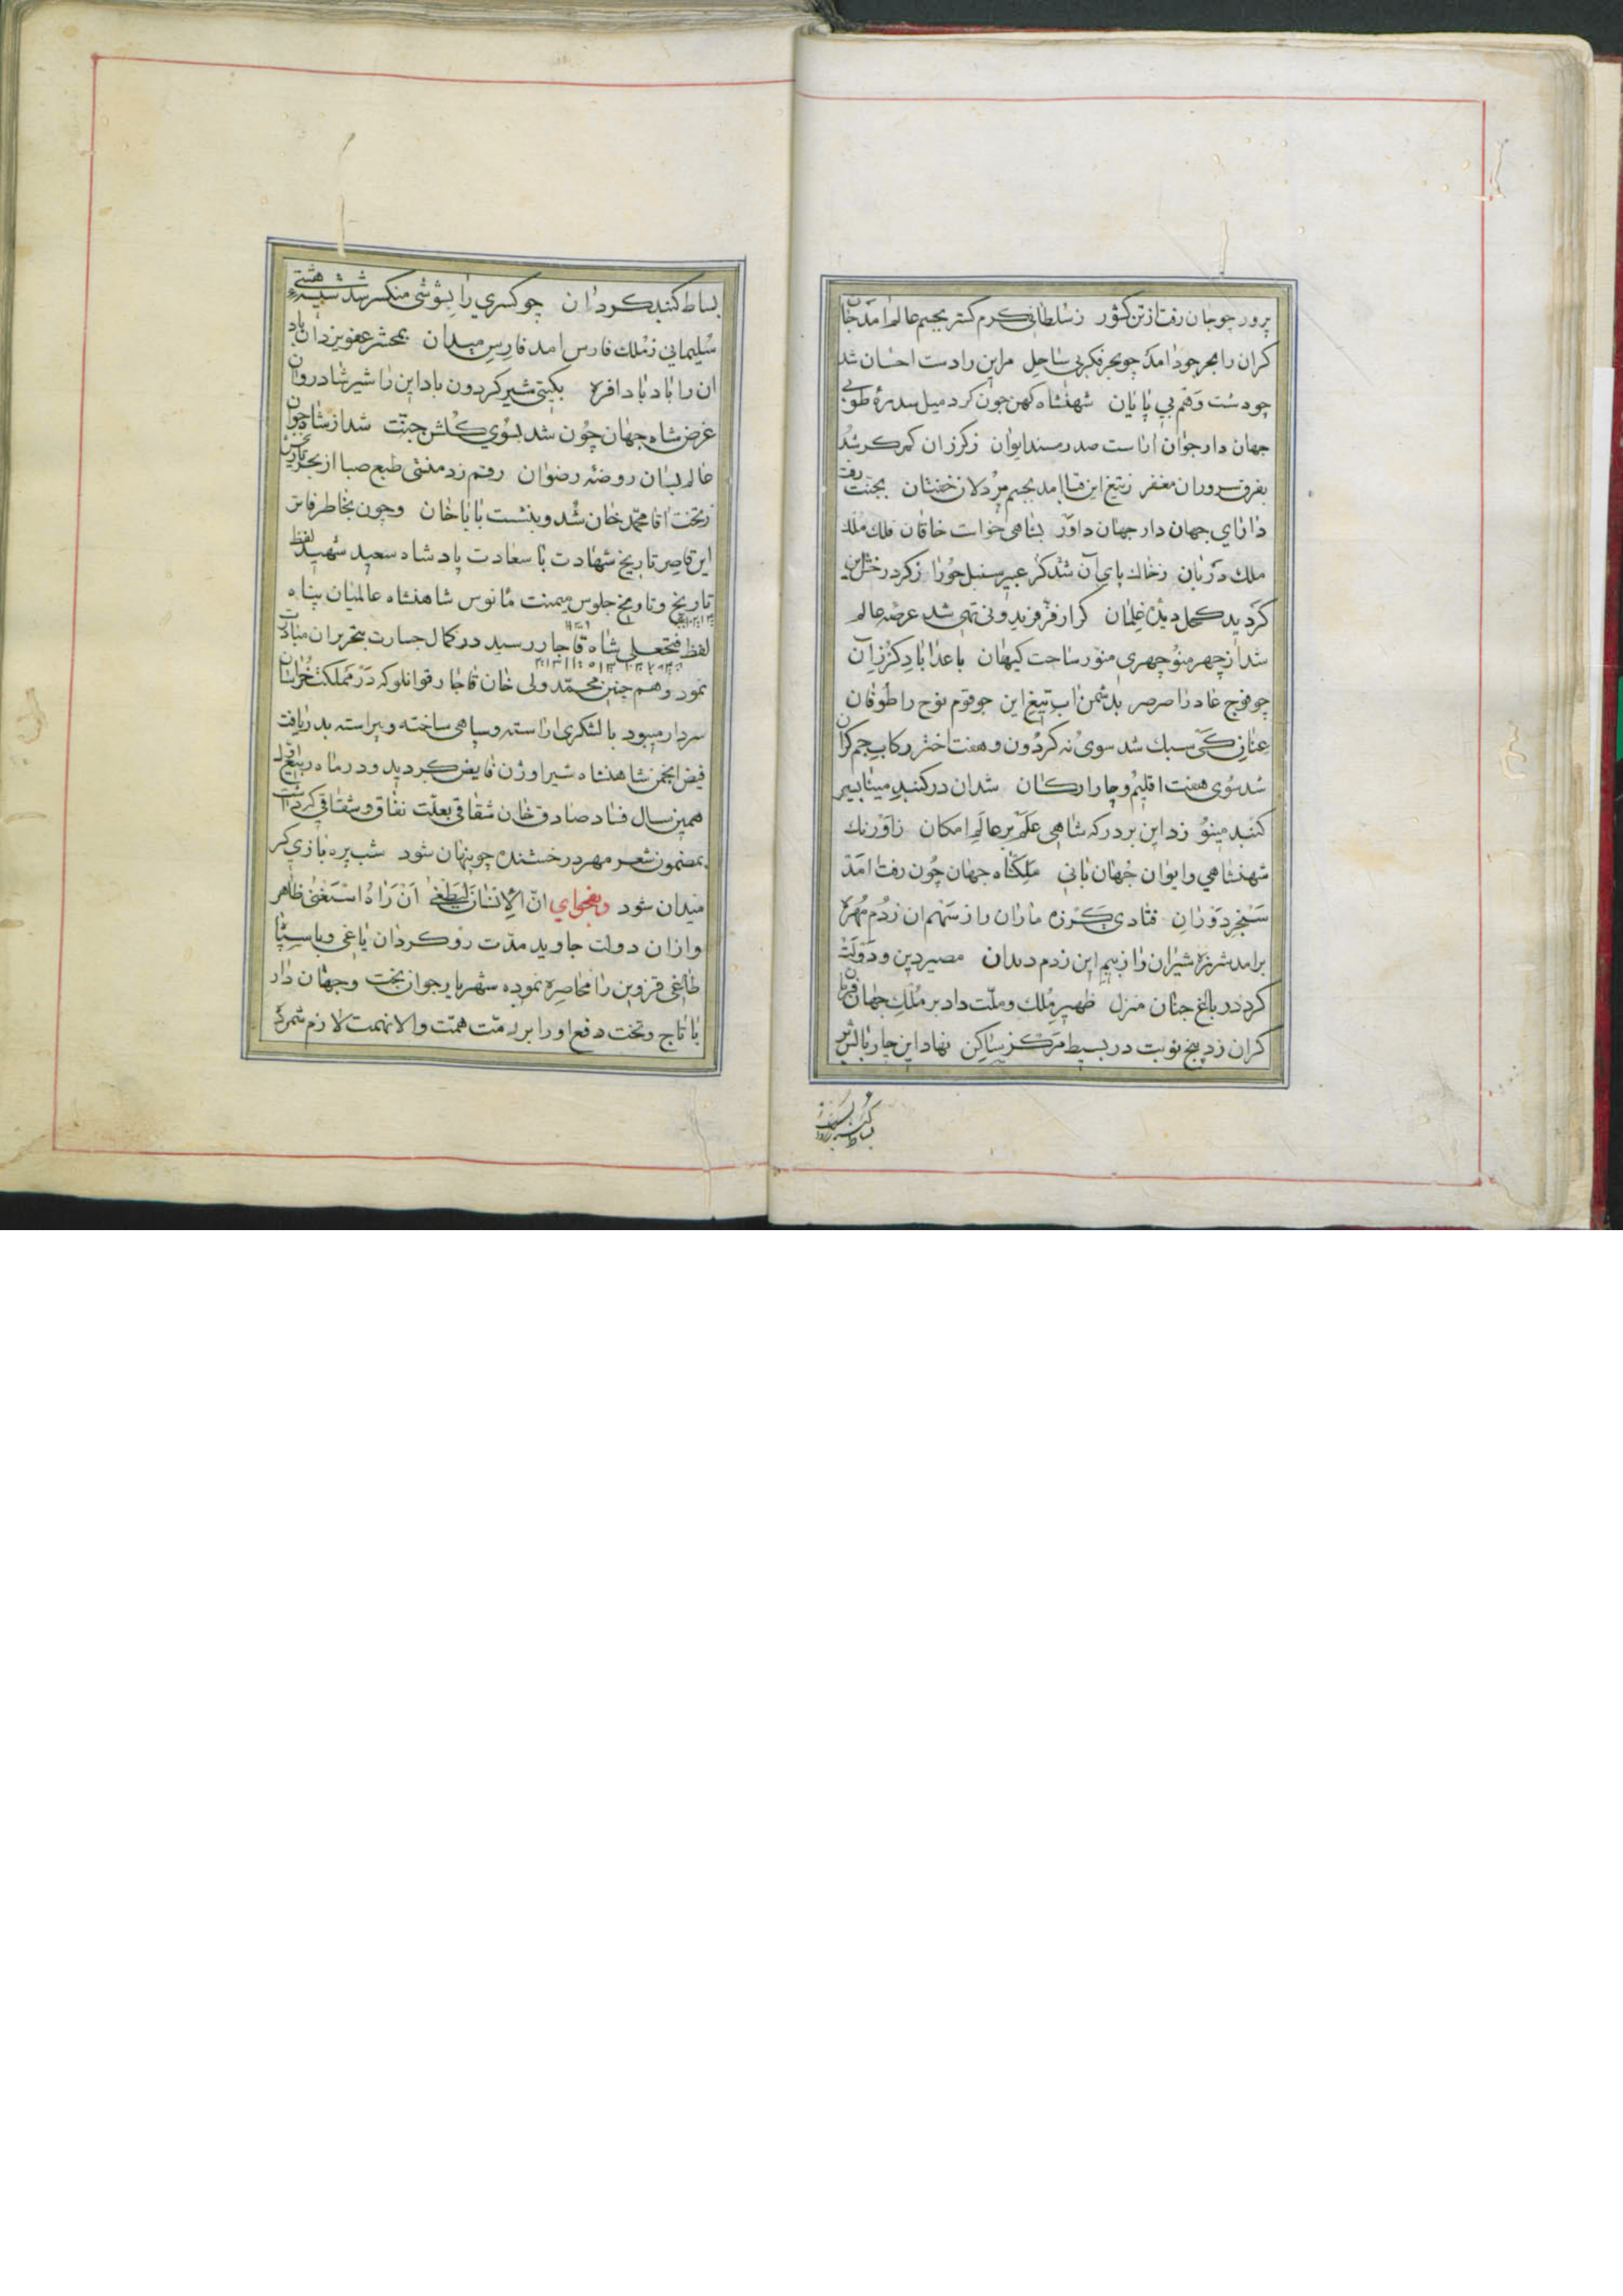 پرور چو جان رفت از تن کشور ز سلطانی کرم گستر بجسم عالم امد جان
کران را بحر جود امد چو بحر فکر بی ساحل مر این را دست احسان شد
چو دست و قم بی پایان شهنشاه کهن چون کرد میل سدرهٔ طوبی
جهان دار جوان اراست صدر مسند ایوان ز کرز ان کمر کر شد
بفرق سروران مغفر ز تیغ این قبا امد بجسم پر دلان خفتان بجنت رفت
دارای جهان دار جهان داور بشاهی خواست خاقان فلك ملك
ملك دربان ز خاك پای آن شد کر عبیر سنبل حورا ز کرد رخش این
کردید کحل دیدهٔ غلمان کر از فر فریدونی تهی شد عرصهٔ عالم
شد از چهر منوچهری منور ساحت کیهان با عدا باد کرز آن
چو فوج عاد را صرصر بدشمن اب تیغ این چو قوم نوح را طوفان
عنان کی سبك شد سوی نه کردون و هفت اختر رکاب جم کران
شد سوی هفت اقلیم و چار ارکان شد ان در کنبد مینا بسیر
کنبد مینو زد این بر درکه شاهی علم بر عالم امکان ز اورنك
شهنشاهی و ایوان جهان بانی ملکشاه جهان چون رفت امد
سنجر دوران فتادی کرزه ماران را ز سهم ان ز دم مهره
برامد شرزه شیران را ز بیم این ز دم دندان مصیر دین و دولت
کرد در باغ جنان منزل ظهیر ملك و ملت داد بر ملك جهان فرمان
کران زد پنج نوبت در بسیط مرکز ساکن نهاد این چار بالش بر
بساط کنبد کردان
بساط کنبد کردان چو کسری را بشوشی منکسر شد شیشهٔ هستی
سلیمانی ز ملك فارس امد فارس میدان بمحشر عفو یزدان باد
ان را باد باد افره بکیتی شیر کردون باد این را شیر شادروان
غرض شاه جهان چون شد بسوی کلشن جنت شد از شاه جوان
عالم بسان روضهٔ رضوان رقم زد منشی طبع صبا از بحر تاریخش
ز تخت اقا محمد خان شد و بنشست بابا خان و چون بخاطر فاتر
این قاصر تاریخ شهادت با سعادت پادشاه سعید شهید لفظ
تاریخ و تاریخ جلوس میمنت مأنوس شاهنشاه عالمیان پناه
لفظ فتحعلی شاه قاجار رسید در کمال جسارت بتحریر ان مبادرت
نمود و هم چنین محمد ولی خان قاجار قوانلو که در مملکت خراسان
سردار میبود با لشکری اراسته و سپاهی ساخته و پیراسته بدریافت
فیض انجمن شاهنشاه شیر اوژن فایض کردید و در ماه ربیع الاول
همین سال فساد صادق خان شقاقی بعلت نفاق و شقاقی که داشت
بمضمون شعر مهر درخشنده چو پنهان شود شب پره بازی کر
میدان شود و بفحوای انّ الإنسان لیطغی ان راه استغنی ظاهر
و از ان دولت جاوید مدت رو کردان یاغی و با سپاه
طاغی قزوین را محاصره نموده شهریار جوان بخت و جهان دار
با تاج و تخت دفع او را بر ذمت همت والا نهمت لازم شمرده